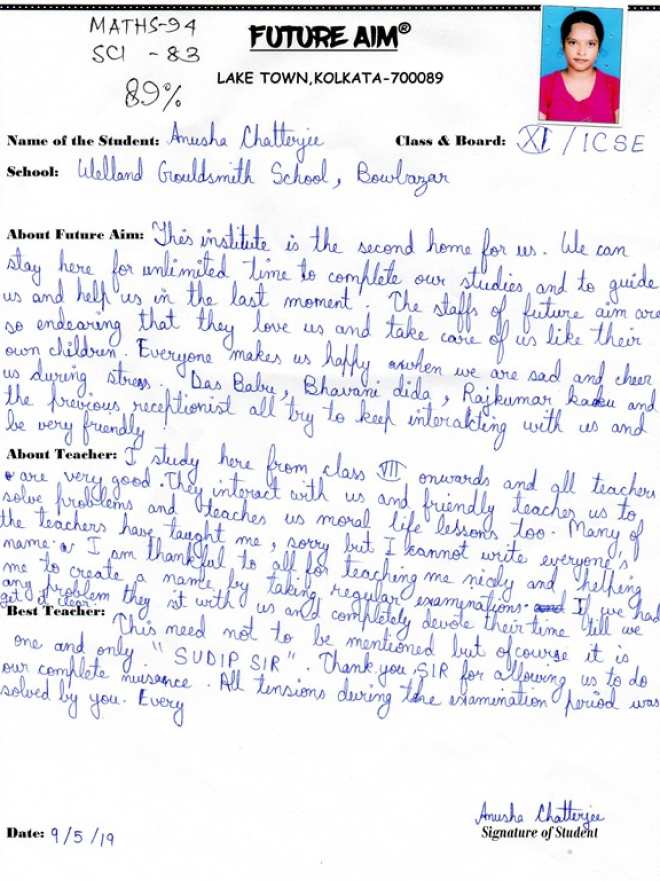 MATHS-94
SCI - 83
89%
FUTURE AIM®
LAKE TOWN,KOLKATA-700089
Name of the Student: Anusha Chatterjee
Class & Board: XI / ICSE
School: Welland Gouldsmith School, Bowbazar
About Future Aim: This institute is the second home for us. We can
stay here for unlimited time to complete our studies and to guide
us and help us in the last moment. The staffs of future aim are
so endearing that they love us and take care of us like their
own children. Everyone makes us happy when we are sad and cheer
us during stress. Das Babu, Bhavani dida, Rajkumar kaku and
the previous receptionist all try to keep interakting with us and
be very friendly
About Teacher: I study here from class VII onwards and all teachers
are very good. They interact with us and friendly teaches us to
solve problems and teaches us moral life lessons too. Many of
the teachers have taught me, sorry but I cannot write everyone's
name. I am thankful to all for teaching me nicely and helping
me to create a name by taking regular examinations. If we had
any problem they sit with us and completely devote their time till we
get it clear.
Best Teacher: This need not to be mentioned but ofcourse it is
one and only "SUDIP SIR". Thank you SIR for allowing us to do
our complete nuisance. All tensions during the examination period was
solved by you. Every
Anusha Chatterjee
Date: 9/5/19
Signature of Student